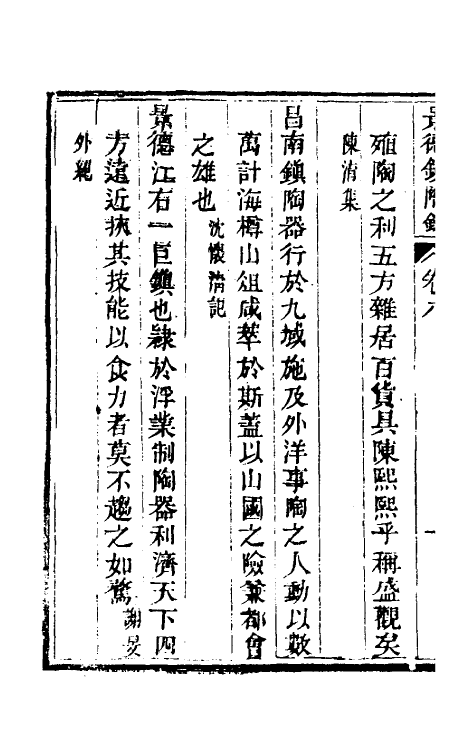 景德鎮陶錄 卷八 一
殖陶之利五方雜居百貨具陳熙熙乎稱盛觀矣
陳淯集
昌南鎮陶器行於九域施及外洋事陶之人動以數
萬計海樽山俎咸萃於斯蓋以山國之險兼都會
之雄也沈懷淸記
景德江右一巨鎮也隷於浮業制陶器利濟天下四
方遠近挾其技能以食力者莫不趨之如鶩謝旻
外紀